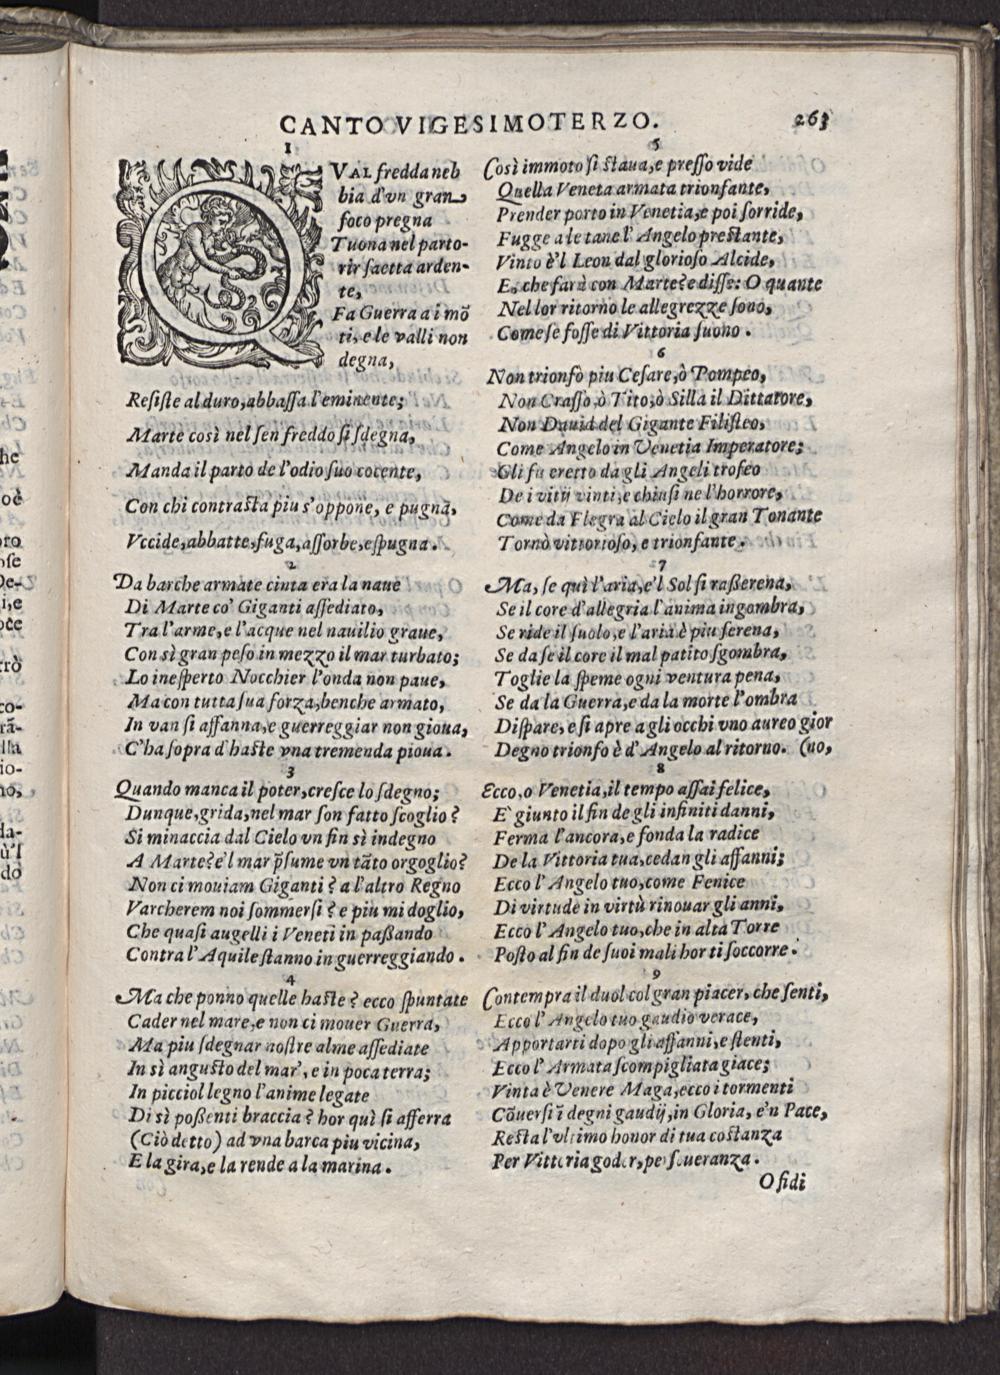 CANTO VIGESIMOTERZO. 263
1
QVAL fredda neb
bia d'vn gran
foco pregna
Tuona nel parto-
rir saetta arden-
te,
Fa Guerra a i mõ
ti, e le valli non
degna,
Resiste al duro, abbassa l'eminente;
Marte così nel sen freddo si sdegna,
Manda il parto de l'odio suo cocente,
Con chi contrasta piu s'oppone, e pugna,
Vccide, abbatte, fuga, assorbe, espugna.
2
Da barche armate cinta era la naue
Di Marte co' Giganti assediato,
Tra l'arme, e l'acque nel nauilio graue,
Con sì gran peso in mezzo il mar turbato;
Lo inesperto Nocchier l'onda non paue,
Ma con tutta sua forza, benche armato,
In van si affanna, e guerreggiar non gioua,
C'ha sopra d'haste vna tremenda pioua.
3
Quando manca il poter, cresce lo sdegno;
Dunque, grida, nel mar son fatto scoglio?
Si minaccia dal Cielo vn fin sì indegno
A Marte? e'l mar p̃sume vn tãto orgoglio?
Non ci mouiam Giganti? a l'altro Regno
Varcherem noi sommersi? e piu mi doglio,
Che quasi augelli i Veneti in paßando
Contra l'Aquile stanno in guerreggiando.
4
Ma che ponno quelle haste? ecco spuntate
Cader nel mare, e non ci mouer Guerra,
Ma piu sdegnar nostre alme assediate
In sì angusto del mar', e in poca terra;
In picciol legno l'anime legate
Di sì poßenti braccia? hor quì si afferra
(Ciò detto) ad vna barca piu vicina,
E la gira, e la rende a la marina.
5
Così immoto si staua, e presso vide
Quella Veneta armata trionfante,
Prender porto in Venetia, e poi sorride,
Fugge a le tane l'Angelo prestante,
Vinto è'l Leon dal glorioso Alcide,
E, che farà con Marte? e disse: O quante
Nel lor ritorno le allegrezze sono,
Come se fosse di Vittoria suono.
6
Non trionfò piu Cesare, ò Pompeo,
Non Crasso, ò Tito, ò Silla il Dittatore,
Non Dauid del Gigante Filisteo,
Come Angelo in Venetia Imperatore;
Gli fu eretto da gli Angeli trofeo
De i vitij vinti, e chiusi ne l'horrore,
Come da Flegra al Cielo il gran Tonante
Tornò vittorioso, e trionfante.
7
Ma, se quì l'aria, e'l Sol si raßerena,
Se il core d'allegria l'anima ingombra,
Se ride il suolo, e l'aria è piu serena,
Se da se il core il mal patito sgombra,
Toglie la speme ogni ventura pena,
Se da la Guerra, e da la morte l'ombra
Dispare, e si apre a gli occhi vno aureo gior
Degno trionfo è d'Angelo al ritorno. (no,
8
Ecco, o Venetia, il tempo assai felice,
E' giunto il fin de gli infiniti danni,
Ferma l'ancora, e fonda la radice
De la Vittoria tua, cedan gli affanni;
Ecco l'Angelo tuo, come Fenice
Di virtude in virtù rinouar gli anni,
Ecco l'Angelo tuo, che in alta Torre
Posto al fin de suoi mali hor ti soccorre.
9
Contempra il duol col gran piacer, che senti,
Ecco l'Angelo tuo gaudio verace,
Apportarti dopo gli affanni, e stenti,
Ecco l'Armata scompigliata giace;
Vinta è Venere Maga, ecco i tormenti
Cõuersi ĩ degni gaudij, in Gloria, e'n Pace,
Resta l'vltimo honor di tua costanza
Per Vittoria goder, perseueranza.
O fidi